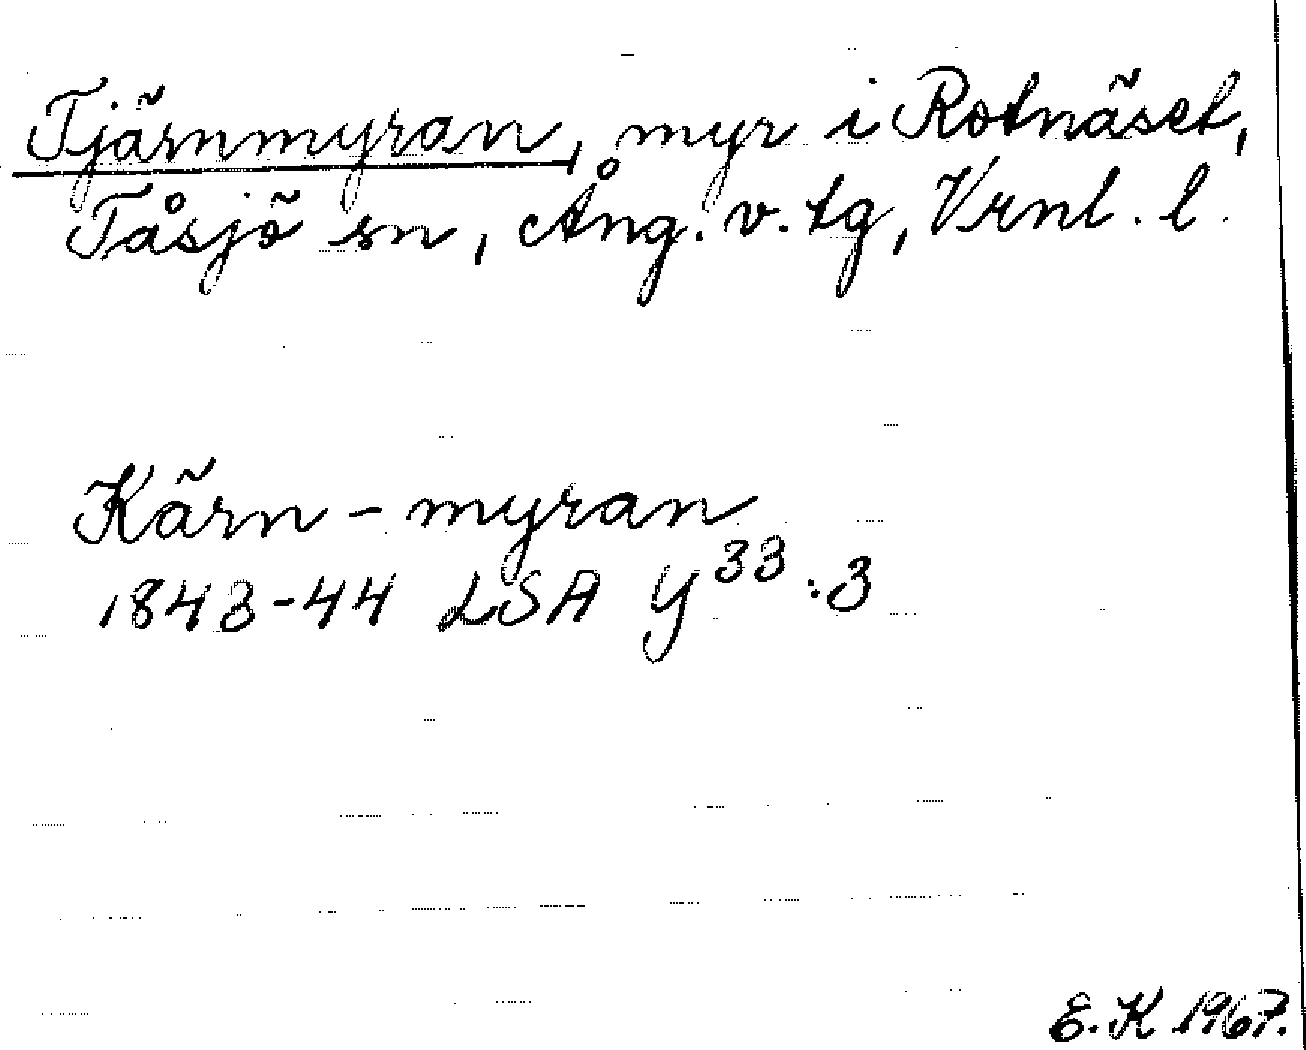 Tjärnmyran, myr i Rotnäset,
Tåsjö sn, Ång. v. tg, Vrnl. l.
Kärn-myran
1843-44 LSA Y³³:3
E.K 1967.